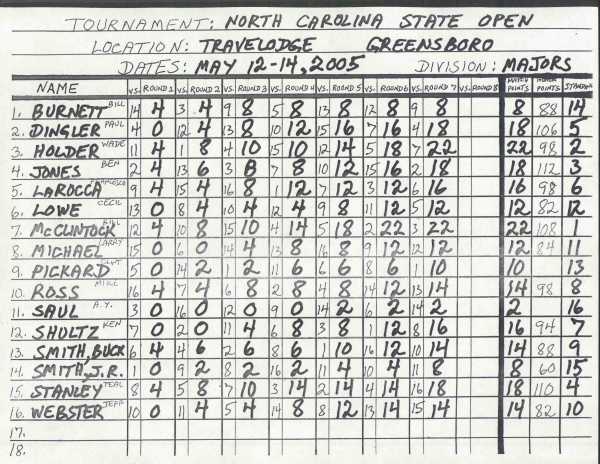 TOURNAMENT: NORTH CAROLINA STATE OPEN
LOCATION: TRAVELODGE GREENSBORO
DATES: MAY 12-14, 2005 DIVISION: MAJORS
NAME VS. ROUND 1 VS. ROUND 2 VS. ROUND 3 VS. ROUND 4 VS. ROUND 5 VS. ROUND 6 VS. ROUND 7 VS. ROUND 8 MATCH POINTS POINTS
1. BURNETT BILL 14 4 3 4 9 8 5 8 13 8 12 8 9 8 8 88 14
2. DINGLER PAUL 4 0 12 4 13 8 10 12 15 16 7 16 4 18 18 106 5
3. HOLDER WADE 11 4 1 8 4 10 15 10 12 14 5 18 7 22 22 98 2
4. JONES BEN 2 4 13 6 3 8 7 8 10 12 15 16 2 18 18 112 3
5. LAROCCA 9 4 15 4 16 8 1 12 7 12 3 12 6 16 16 98 6
6. LOWE CECIL 13 0 8 4 10 4 12 4 9 8 11 12 5 12 12 82 12
7. McCLINTOCK BILL 12 4 10 8 15 10 4 14 5 18 2 22 3 22 22 108 1
8. MICHAEL LARRY 15 0 6 0 14 4 13 8 16 8 9 12 12 12 12 84 11
9. PICKARD 5 0 14 2 1 2 11 6 6 6 8 6 1 10 10 13
10. ROSS MIKE 16 4 7 4 6 8 2 8 4 8 14 12 13 14 14 98 8
11. SAUL A.Y. 3 0 16 0 12 0 9 0 14 2 6 2 14 2 2 16
12. SHULTZ KEN 7 0 2 0 11 4 6 8 3 8 1 12 8 16 16 94 7
13. SMITH, BUCK 6 4 4 6 2 6 8 6 1 10 16 12 10 14 14 88 9
14. SMITH, J.R. 1 0 9 2 8 2 16 2 11 4 10 4 11 8 8 60 15
15. STANLEY TEAL 8 4 5 8 7 10 3 14 2 14 4 14 16 18 18 110 4
16. WEBSTER JEFF 10 0 11 4 5 4 14 8 8 12 13 14 15 14 14 82 10
17.
18.